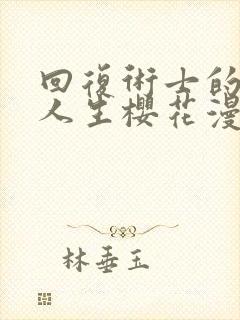 回復術士的
人生櫻花漫
林垂玉